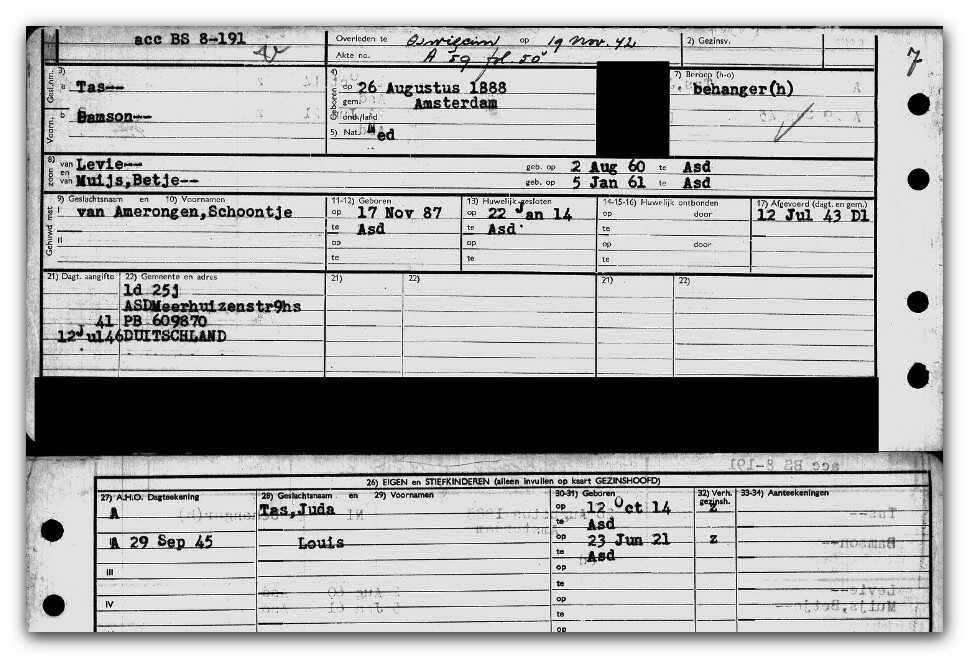 acc BS 8-191
Overleden te Oswiecim op 19 Nov. 42
Akte no. A 59 fol. 50
2) Gezinsv.
7
3) Gesl.nm.
a Tas--
Voorn. b Samson--
4) Geboren
op 26 Augustus 1888
gem. Amsterdam
ond./land
5) Nat. Ned
7) Beroep (h-o)
behanger(h)
8) zoon
van Levie-- geb. op 2 Aug 60 te Asd
en van Muijs,Betje-- geb. op 5 Jan 61 te Asd
Gehuwd met
9) Geslachtsnaam en 10) Voornamen
I van Amerongen,Schoontje
II
11-12) Geboren
op 17 Nov 87
te Asd
op
te
13) Huwelijk gesloten
op 22 Jan 14
te Asd.
op
te
14-15-16) Huwelijk ontbonden
op door
te
op door
te
17) Afgevoerd (dagt. en gem.)
12 Jul 43 Dl
21) Dagt. aangifte 22) Gemeente en adres
21) 22)
21) 22)
ld 25j
ASDMeerhuizenstr9hs
41 PB 609870
12Jul46DUITSCHLAND
acc BS 8-191
26) EIGEN en STIEFKINDEREN (alleen invullen op kaart GEZINSHOOFD)
27) A.H.O. Dagteekening
28) Geslachtsnaam en 29) Voornamen
30-31) Geboren
32) Verh. gezinsh.
33-34) Aanteekeningen
A Tas,Juda op 12 Oct 14 z
te Asd
A 29 Sep 45 Louis op 23 Jun 21 z
te Asd
III op
te
IV op
te
op